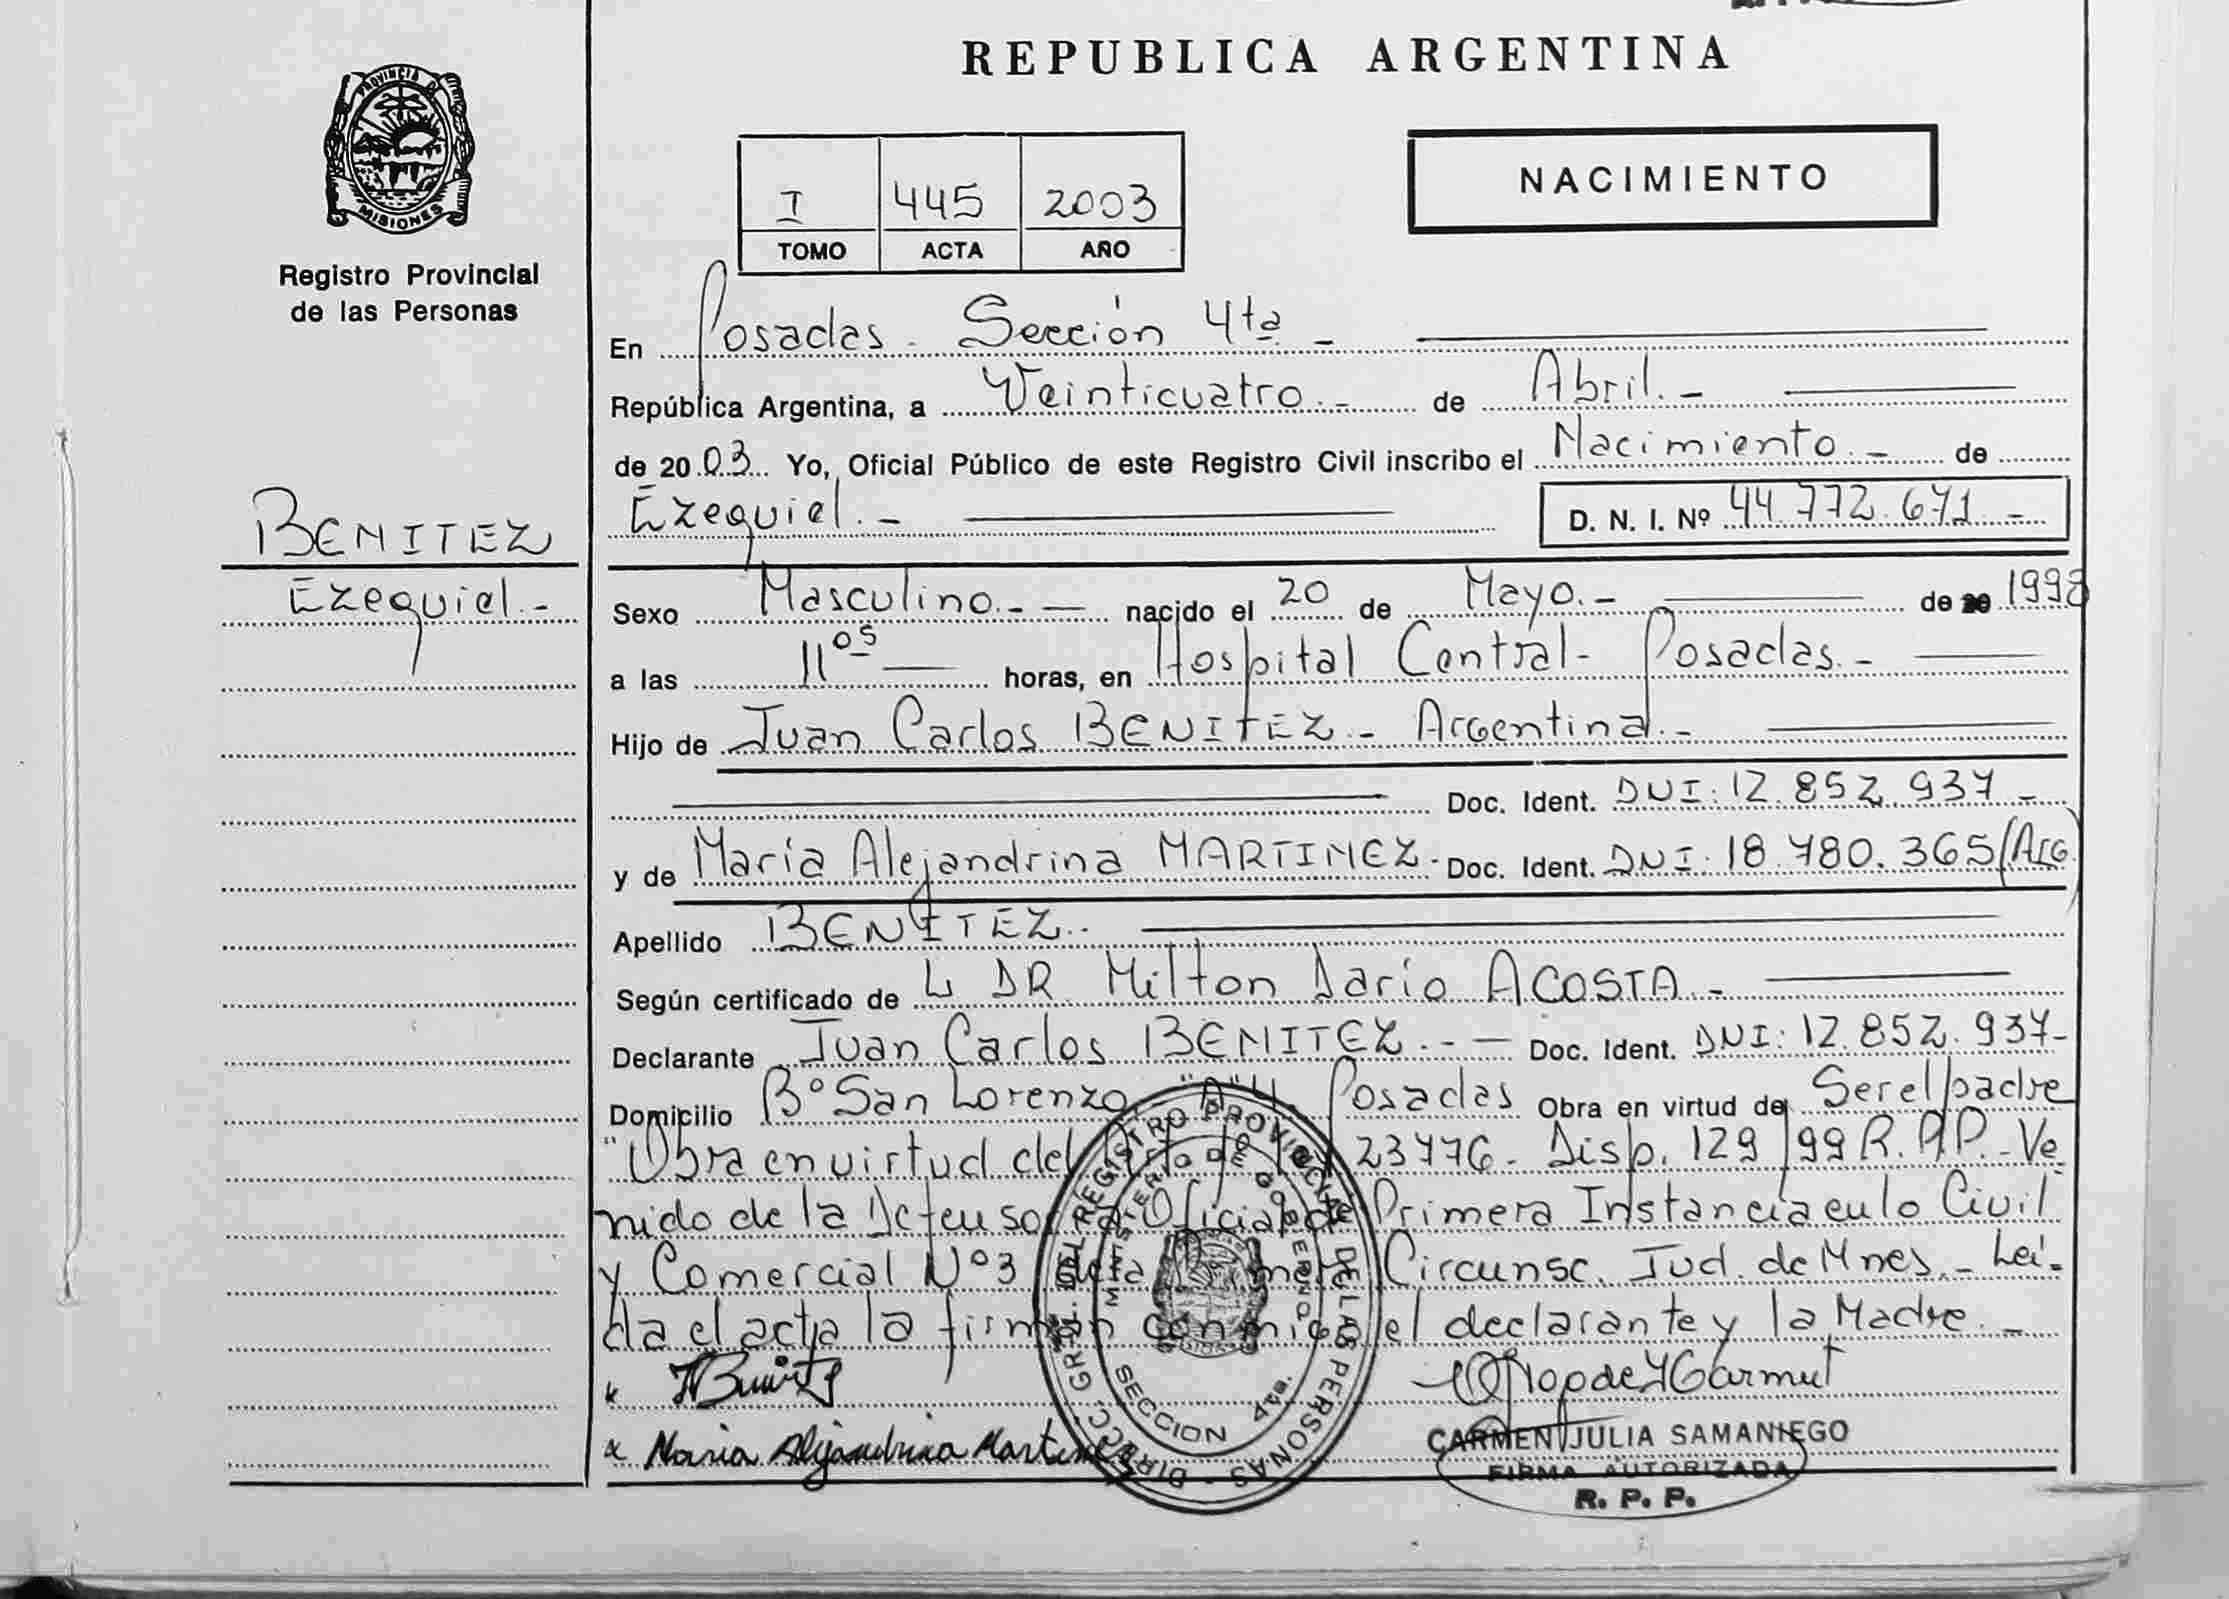 REPUBLICA ARGENTINA
PROVINCIA DE
MISIONES
Registro Provincial
de las Personas
NACIMIENTO
I 445 2003
TOMO ACTA AÑO
En Posadas - Sección 4ta -
República Argentina, a Veinticuatro.- de Abril.-
de 2003 Yo, Oficial Público de este Registro Civil inscribo el Nacimiento.- de
Ezequiel.- D. N. I. Nº 44.772.671.-
BENITEZ
Ezequiel.-
Sexo Masculino.- nacido el 20 de Mayo.- de 1998
a las 11 05 horas, en Hospital Central - Posadas.-
Hijo de Juan Carlos BENITEZ.- Argentina.-
Doc. Ident. DNI: 12.852.937-
y de María Alejandrina MARTINEZ- Doc. Ident. DNI: 18.780.365 (Arg.)
Apellido BENITEZ.-
Según certificado de DR. Milton Darío ACOSTA.-
Declarante Juan Carlos BENITEZ.-- Doc. Ident. DNI: 12.852.937-
Domicilio Bº San Lorenzo "A" 4. Posadas Obra en virtud de Ser el padre
"Obra en virtud del 23776- Disp. 129/99 R.P.P.- Ve
nido de la Defensoría Oficial de Primera Instancia en lo Civil
y Comercial Nº3 de la Primera Circunsc. Jud. de Mnes.- Leí-
da el acta la firman conmigo el declarante y la Madre.-
María Alejandrina Martinez
DIRECC. GRAL. DEL REGISTRO PROVINCIAL DE LAS PERSONAS -
MINISTERIO DE GOBIERNO
SECCION 4ta.
CARMEN JULIA SAMANIEGO
FIRMA AUTORIZADA
R. P. P.